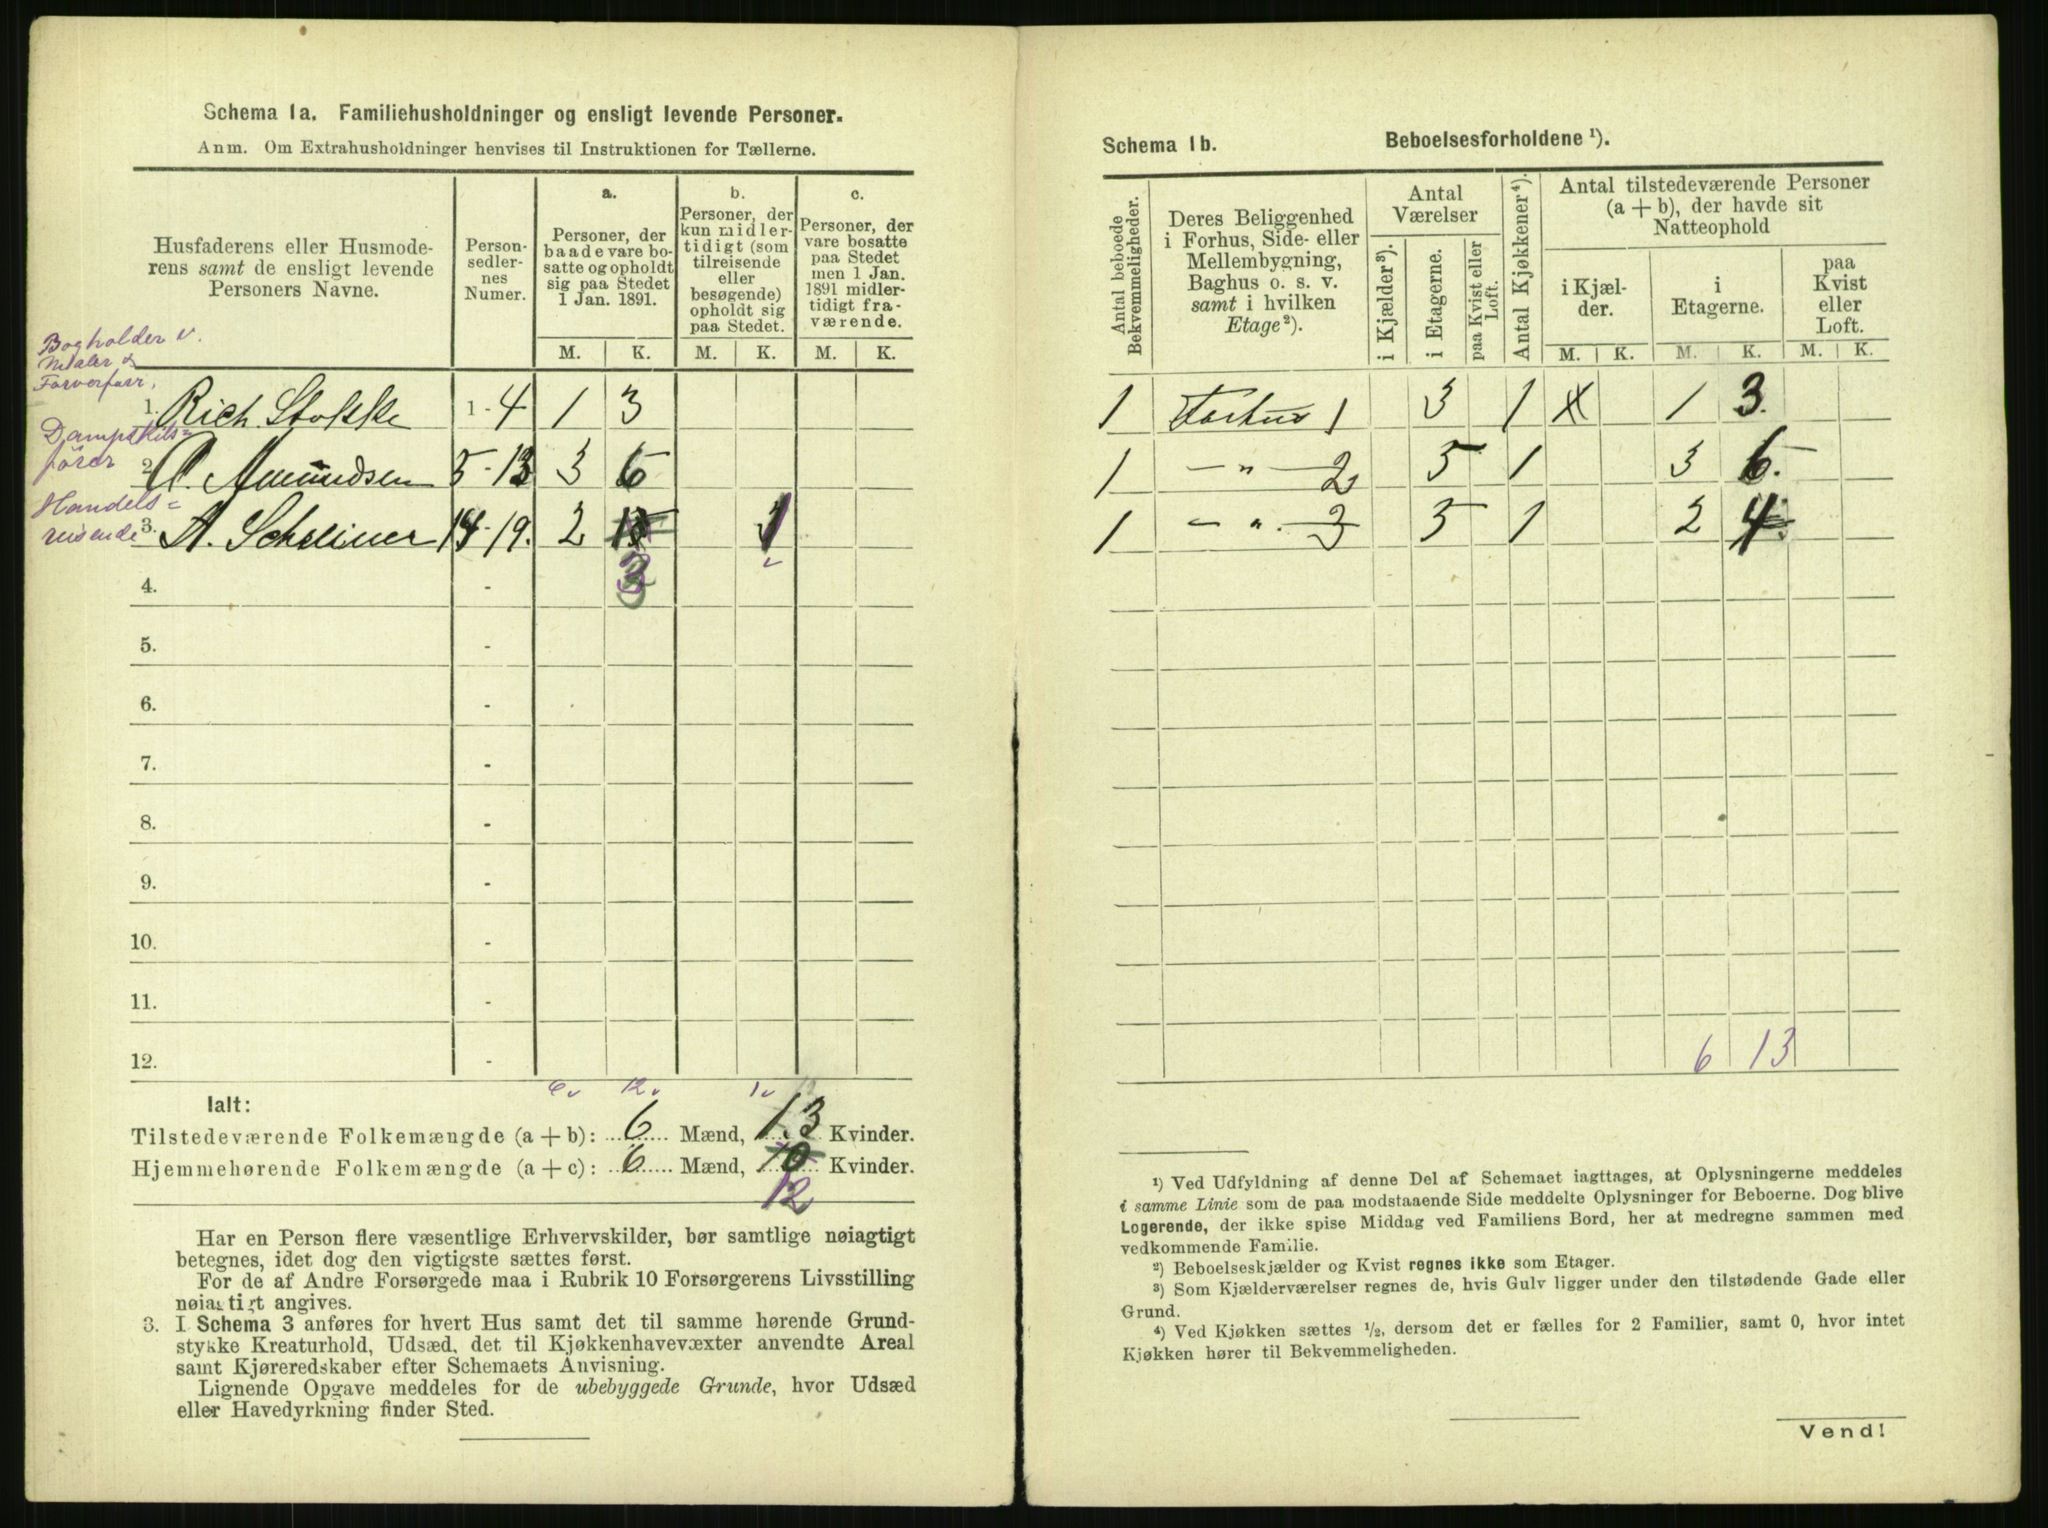 Schema 1a. Familiehusholdninger og ensligt levende Personer.
Anm. Om Extrahusholdninger henvises til Instruktionen for Tællerne.
Husfaderens eller Husmode-
rens samt de ensligt levende
Personers Navne.
Person-
sedler-
nes
Numer.
a.
Personer, der
baade vare bo-
satte og opholdt
sig paa Stedet
1 Jan. 1891.
b.
Personer, der
kun midler-
tidigt (som
tilreisende
eller
besøgende)
opholdt sig
paa Stedet.
c.
Personer, der
vare bosatte
paa Stedet
men 1 Jan.
1891 midler-
tidigt fra-
værende.
M. K. M. K. M. K.
Bogholder v.
Maler &
Farverforr,
1. Rich. Stokke 1 - 4 1 3
Dampskibs=
fører
2. Amundsen 5 - 13 3 6
Handels=
reisende
3. A. Schreiner 14 - 19. 2 1
3
4. -
5. -
6. -
7. -
8. -
9. -
10. -
11. -
12. -
6v 12v 1v
Ialt:
Tilstedeværende Folkemængde (a + b): 6 Mænd, 13 Kvinder.
Hjemmehørende Folkemængde (a + c): 6 Mænd, 10 Kvinder.
12
Har en Person flere væsentlige Erhvervskilder, bør samtlige nøiagtigt
betegnes, idet dog den vigtigste sættes først.
For de af Andre Forsørgede maa i Rubrik 10 Forsørgerens Livsstilling
nøiagtigt angives.
3. I Schema 3 anføres for hvert Hus samt det til samme hørende Grund-
stykke Kreaturhold, Udsæd, det til Kjøkkenhavevæxter anvendte Areal
samt Kjøreredskaber efter Schemaets Anvisning.
Lignende Opgave meddeles for de ubebyggede Grunde, hvor Udsæd
eller Havedyrkning finder Sted.
Schema 1b. Beboelsesforholdene ¹).
Antal beboede
Bekvemmeligheder.
Deres Beliggenhed
i Forhus, Side- eller
Mellembygning,
Baghus o. s. v.
samt i hvilken
Etage ²).
Antal
Værelser
i Kjælder ³).
i Etagerne.
paa Kvist eller
Loft.
Antal Kjøkkener ⁴).
Antal tilstedeværende Personer
(a + b), der havde sit
Natteophold
i Kjæl-
der.
i
Etagerne.
paa
Kvist
eller
Loft.
M. K. M. K. M. K.
1 Forhus 1 3 1 x 1 3.
1 — „ — 2 5 1 3 6.
1 — „ — 3 5 1 2 4.
6 13
¹) Ved Udfyldning af denne Del af Schemaet iagttages, at Oplysningerne meddeles
i samme Linie som de paa modstaaende Side meddelte Oplysninger for Beboerne. Dog blive
Logerende, der ikke spise Middag ved Familiens Bord, her at medregne sammen med
vedkommende Familie.
²) Beboelseskjælder og Kvist regnes ikke som Etager.
³) Som Kjælderværelser regnes de, hvis Gulv ligger under den tilstødende Gade eller
Grund.
⁴) Ved Kjøkken sættes ½, dersom det er fælles for 2 Familier, samt 0, hvor intet
Kjøkken hører til Bekvemmeligheden.
Vend!